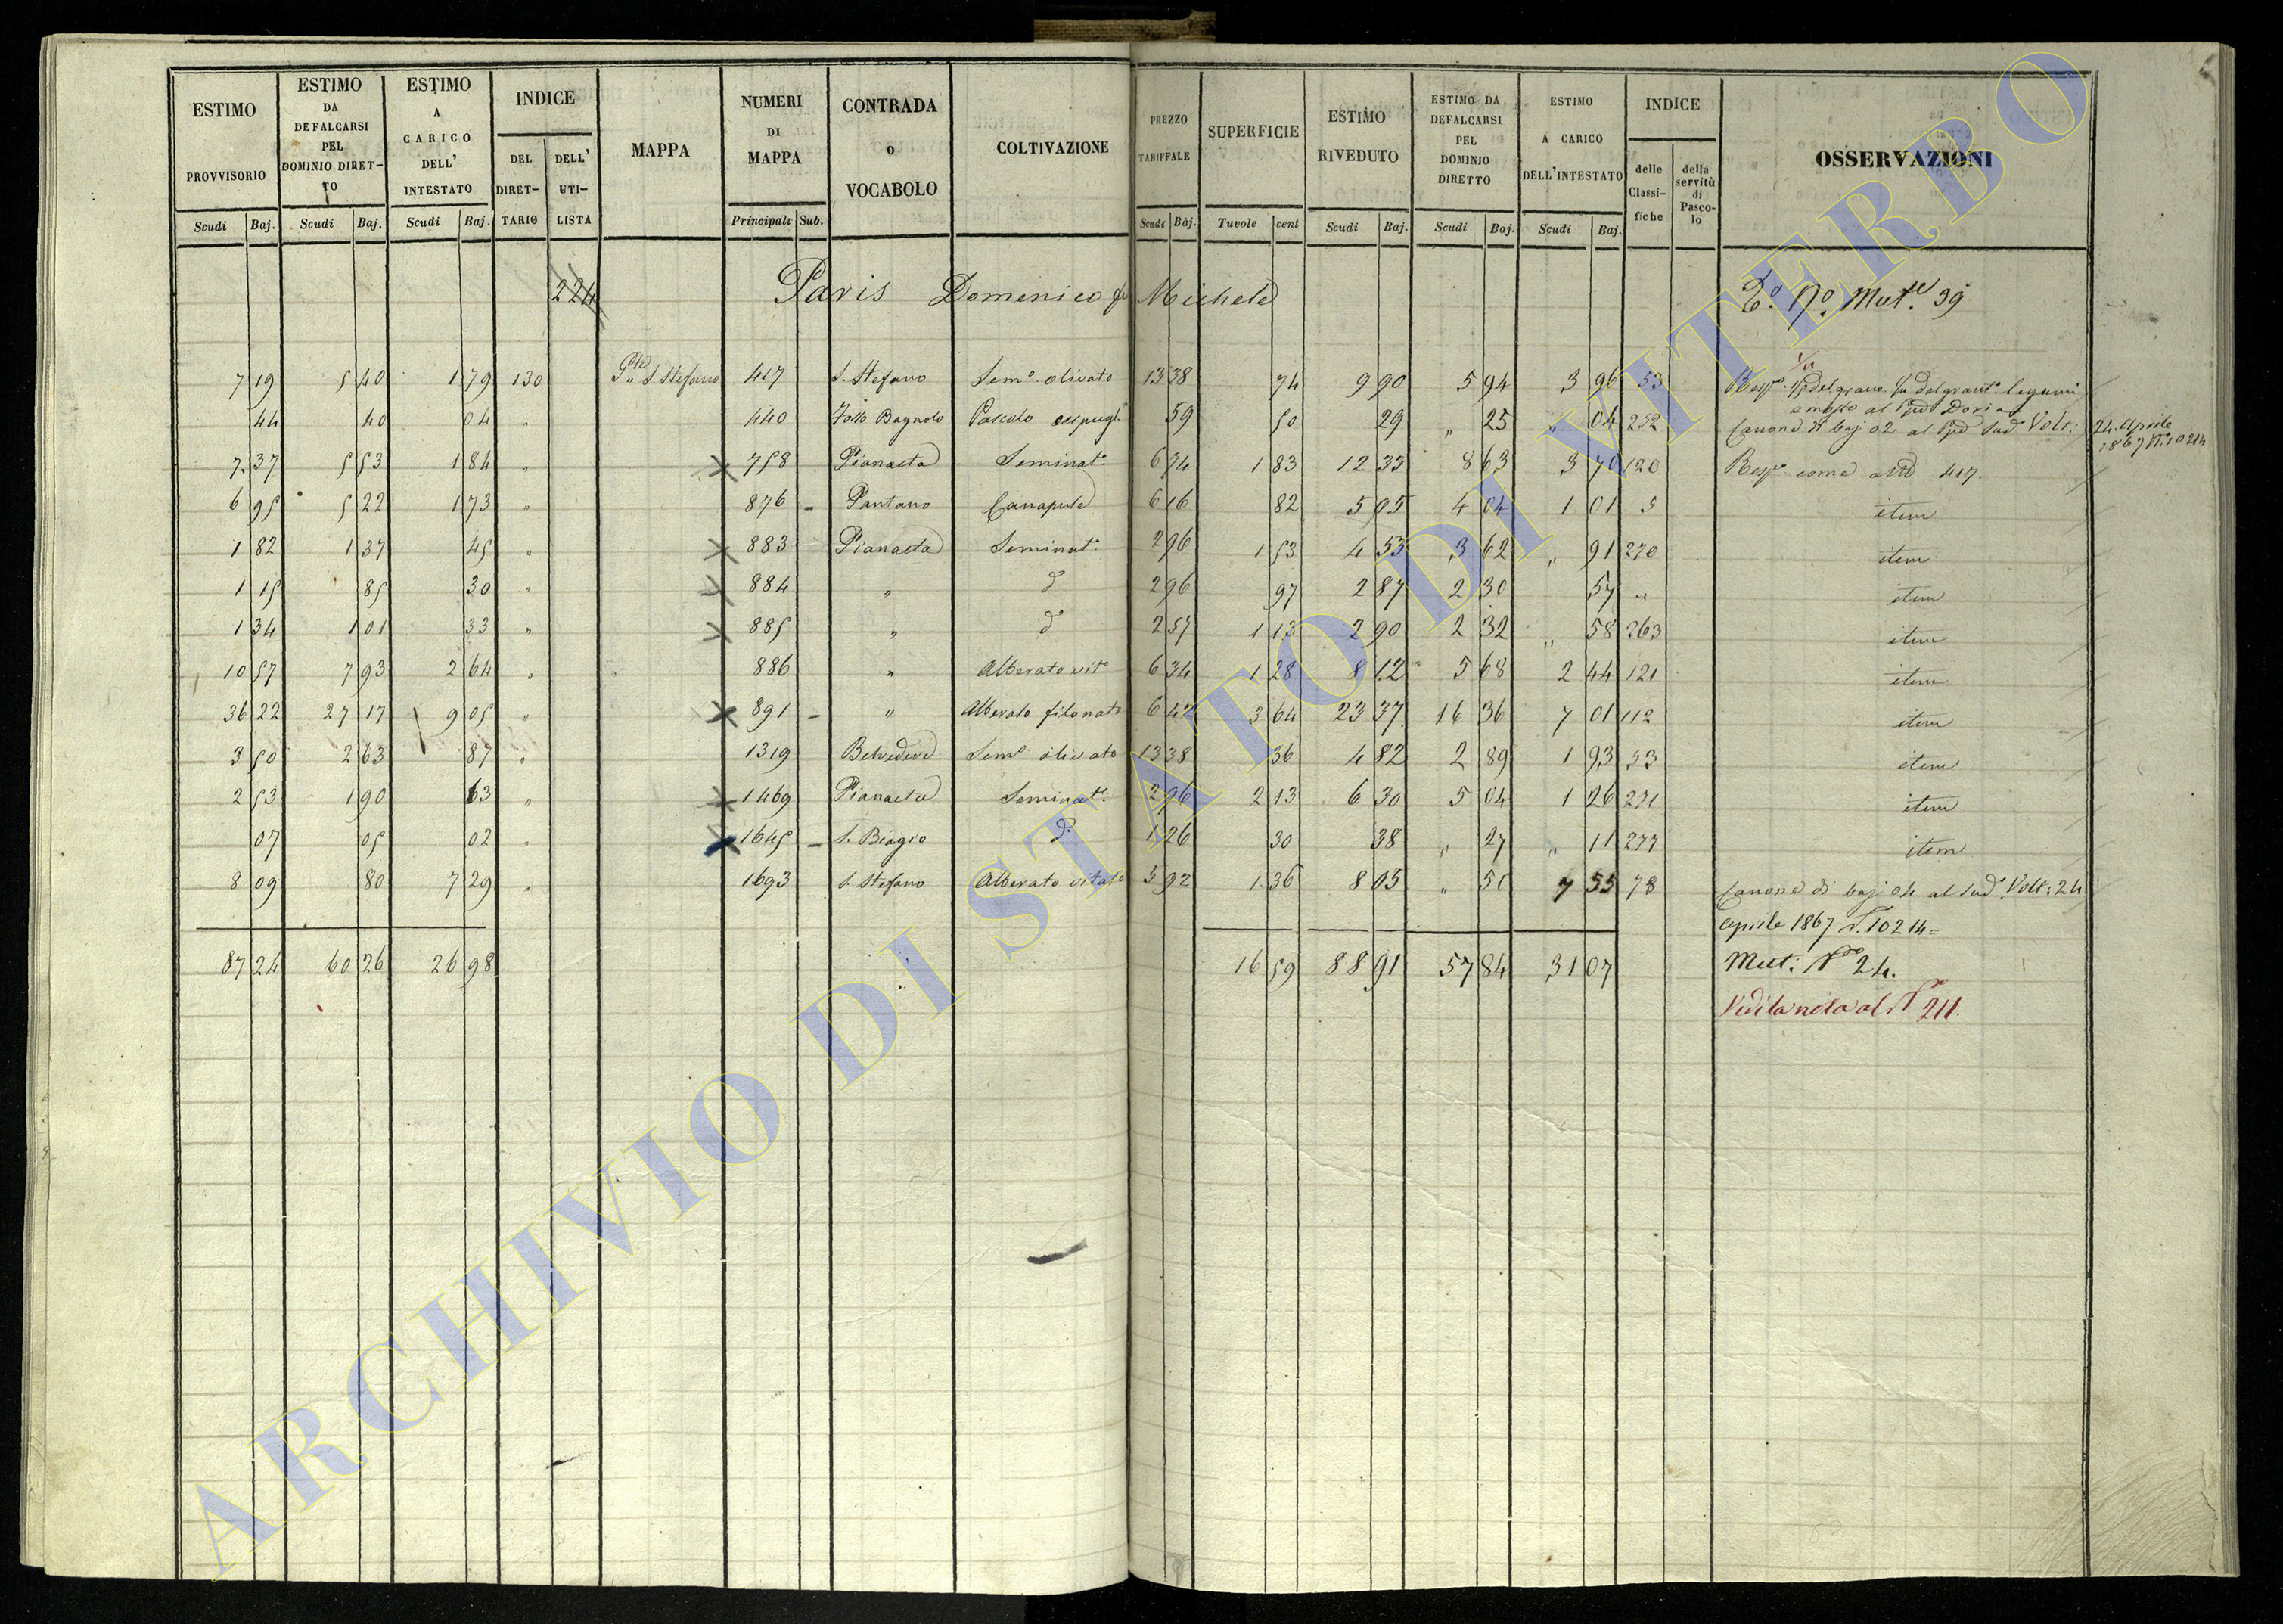 ESTIMO PROVVISORIO Scudi Baj. | ESTIMO DA DEFALCARSI PEL DOMINIO DIRETTO Scudi Baj. | ESTIMO A CARICO DELL' INTESTATO Scudi Baj. | INDICE DEL DIRETTARIO | DELL' UTILISTA | MAPPA | NUMERI DI MAPPA Principali Sub. | CONTRADA o VOCABOLO | COLTIVAZIONE | PREZZO TARIFFALE Scudi Baj. | SUPERFICIE Tavole cent | ESTIMO RIVEDUTO Scudi Baj. | ESTIMO DA DEFALCARSI PEL DOMINIO DIRETTO Scudi Baj. | ESTIMO A CARICO DELL'INTESTATO Scudi Baj. | INDICE delle Classifiche | della servitù di Pascolo | OSSERVAZIONI
224 Paris Domenico Michele Mut.e 39
7 19 | 5 40 | 1 79 | 130 | S. Stefano | 417 | S. Stefano | Sem.o olivato | 13 38 | 74 | 9 90 | 5 94 | 3 96 | 53 | 1/5 del grano legumi
e mosto al Doria
44 | 40 | 04 | " | 440 | Fosso Bagnolo | Pascolo | 59 | 50 | 29 | " 25 | " 04 | 252 | Canone di baj 02 al Volt: 24 Aprile
1867 N. 10214
7 37 | 5 53 | 1 84 | " | 758 | Pianaeta | Seminat.o | 6 74 | 1 83 | 12 33 | 8 63 | 3 70 | 120 | come 417.
6 95 | 5 22 | 1 73 | " | 876 - | Pantano | Canapule | 6 16 | 82 | 5 05 | 4 04 | 1 01 | 5 | item
1 82 | 1 37 | 45 | " | 883 | Pianaeta | Seminat.o | 2 96 | 1 53 | 4 53 | 3 62 | " 91 | 270 | item
1 15 | 85 | 30 | " | 884 | " | d.o | 2 96 | 97 | 2 87 | 2 30 | 57 | " | item
1 34 | 1 01 | 33 | " | 885 | " | d.o | 2 57 | 1 13 | 2 90 | 2 32 | " 58 | 263 | item
10 57 | 7 93 | 2 64 | " | 886 | " | Alberato vit.o | 6 34 | 1 28 | 8 12 | 5 68 | 2 44 | 121 | item
36 22 | 27 17 | 9 05 | " | 891 - | " | Alberato filonato | 6 42 | 3 64 | 23 37 | 16 36 | 7 01 | 112 | item
3 50 | 2 63 | 87 | " | 1319 | Belvedere | Sem.o olivato | 13 38 | 36 | 4 82 | 2 89 | 1 93 | 53 | item
2 53 | 1 90 | 63 | " | 1469 | Pianaeta | Seminat.o | 2 96 | 2 13 | 6 30 | 5 04 | 1 26 | 271 | item
07 | 05 | 02 | " | 1645 - | S. Biagio | d.o | 1 26 | 30 | 38 | " 27 | " 11 | 277 | item
8 09 | 80 | 7 29 | " | 1693 | S. Stefano | Alberato vitato | 5 92 | 1 36 | 8 05 | " 51 | 7 55 | 78 | Canone di baj 04 al Volt: 24
Aprile 1867 N. 10214=
87 24 | 60 26 | 26 98 | 16 59 | 88 91 | 57 84 | 31 07 | Mut: N.o 24.
Vedi la nota al N.o 211.
ARCHIVIO DI STATO DI VITERBO